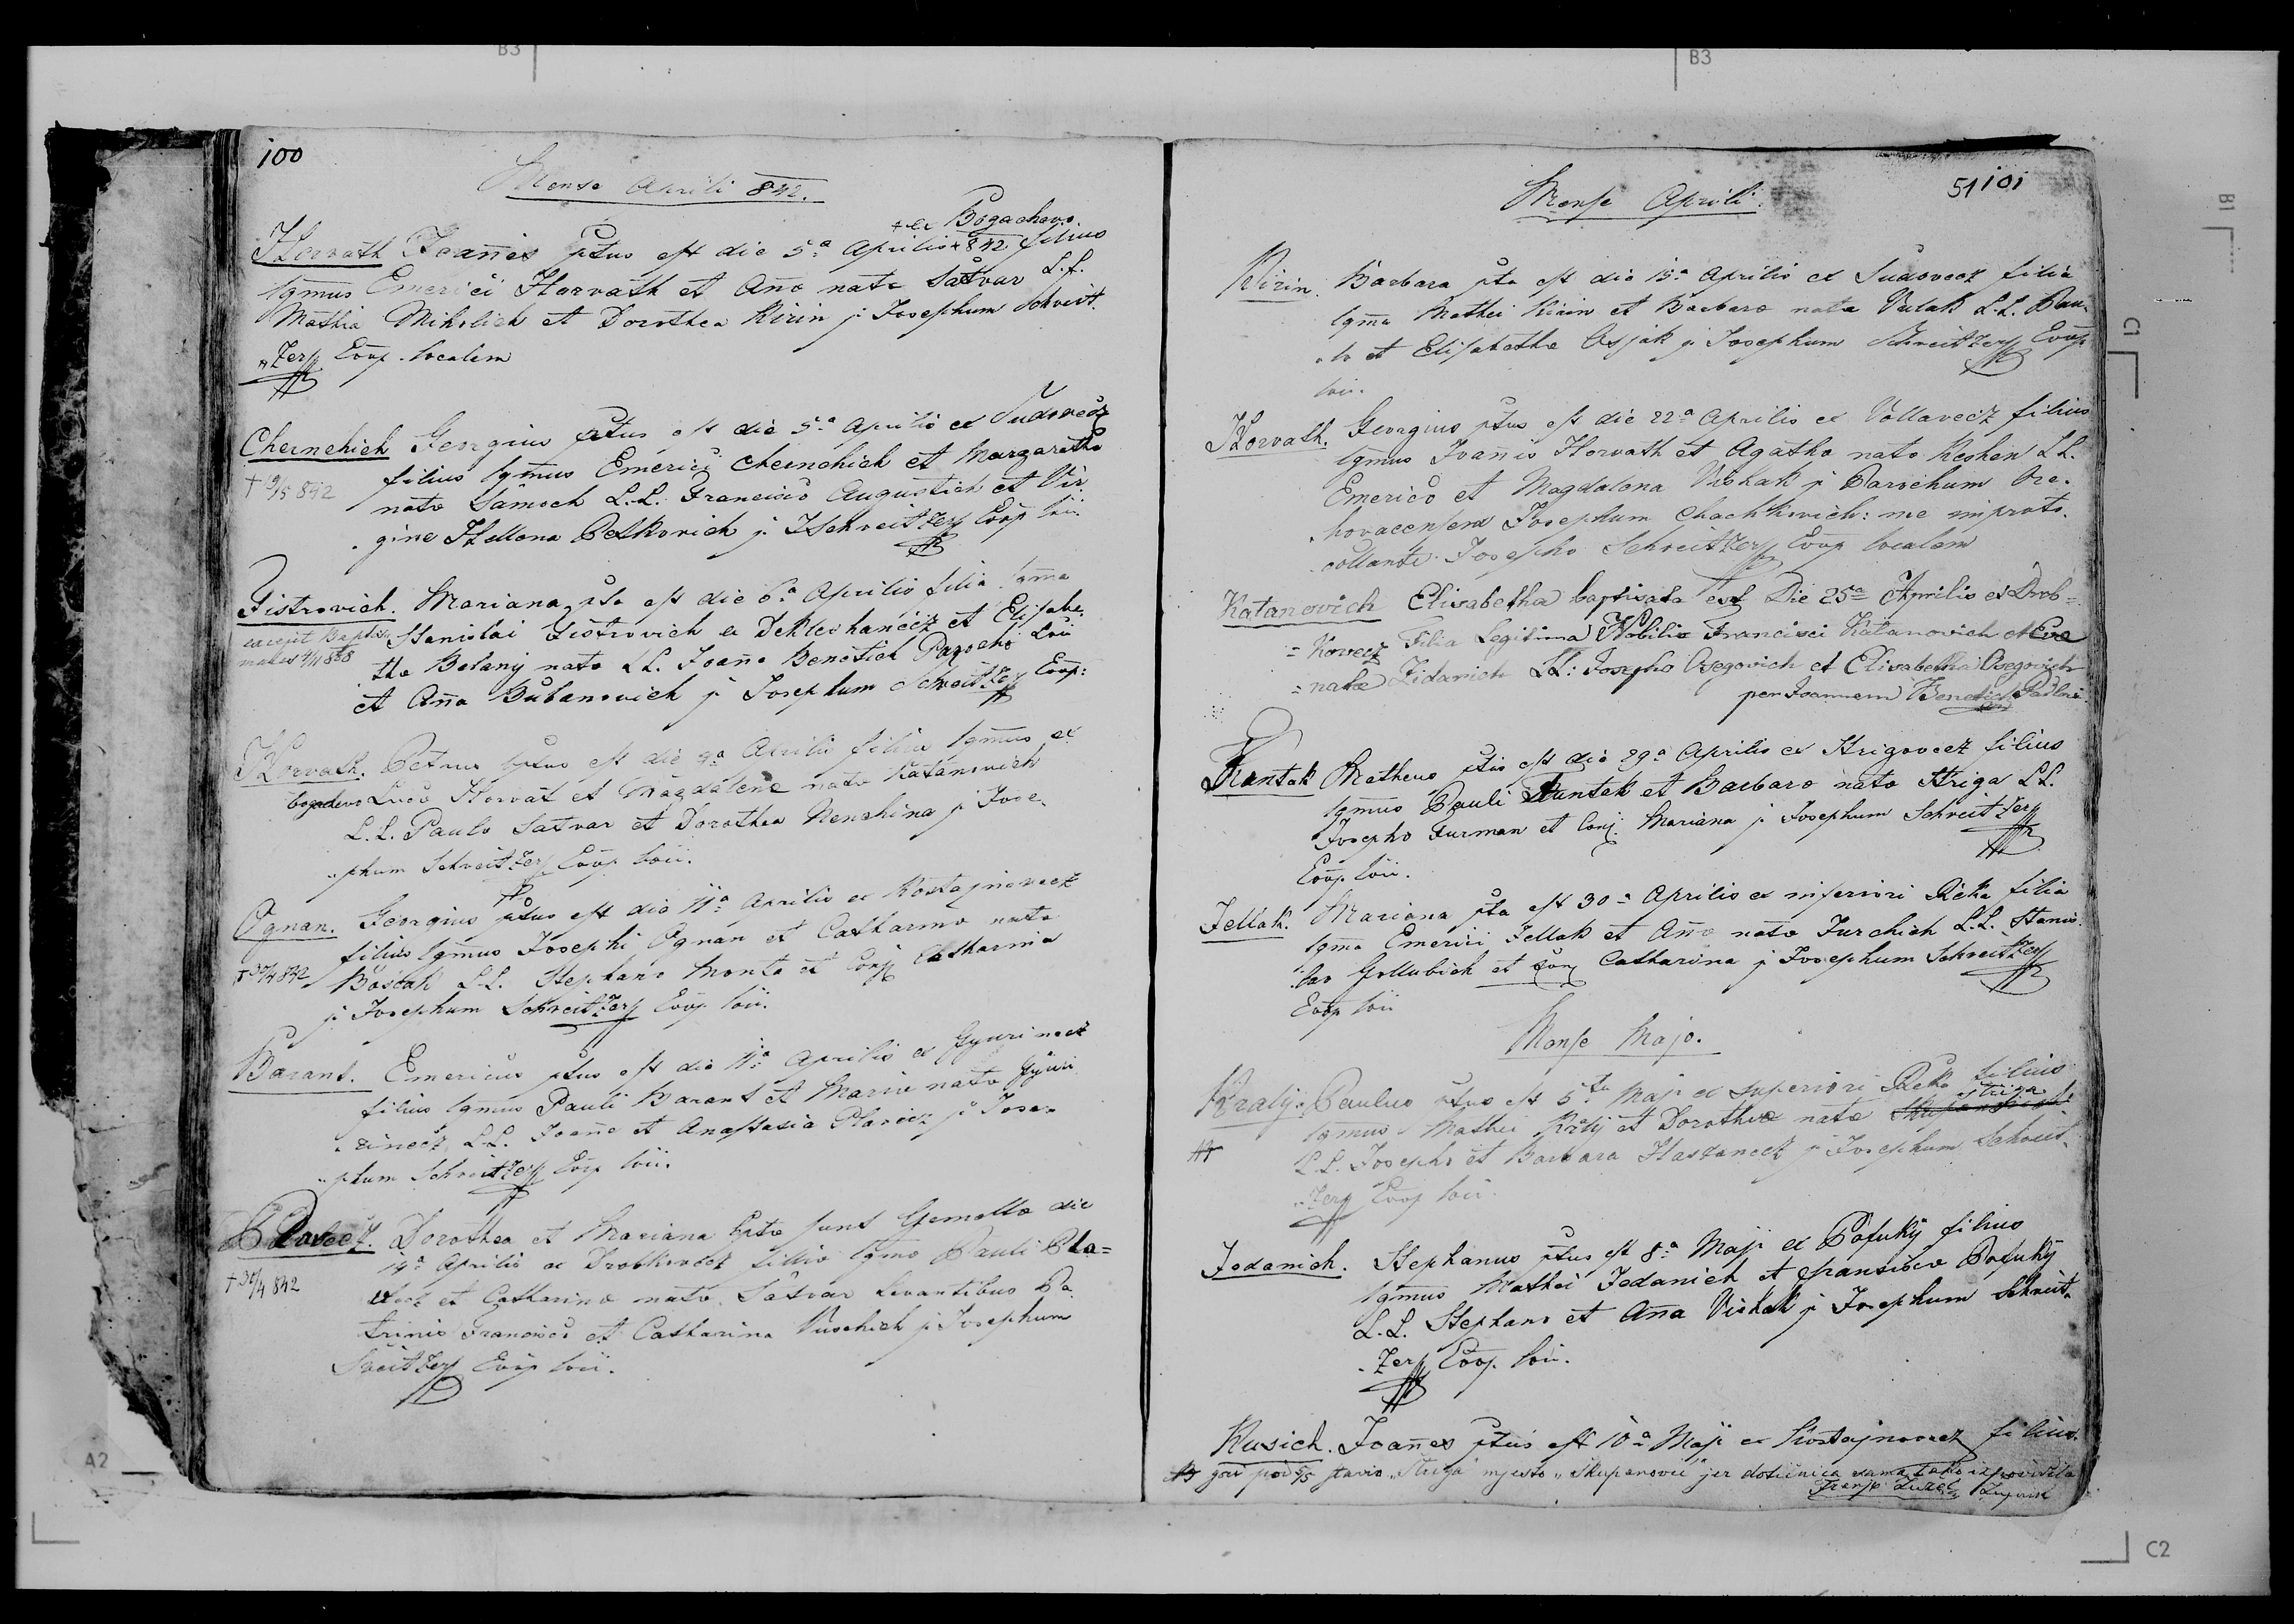 100
Mense Aprili 842.
+ ex Bogachevo.
Horvath Joañes ptus est die 5ª Aprilis + 842 filius
lgmus Emerici Horvath et Anæ natæ Satvar L.L.
Mathia Mikolich et Dorothea Kirin p Josephum Schreit.
„Zer Coop. localem
Chernchich Georgius ptus est die 5ª Aprilis ex Sudovecz
filius lgmus Emerici Chernchich et Margarethæ
† 19/5 842
natæ Samoch L.L. Francisco Augustich et Vir
gine Hellena Petkovich p. J Schreitzer Coop loii.
Fistrovich. Mariana pta est die 6ª Aprilis filia lgma
excepit Baptis
Stanislai Fistrovich ex Dekleshanecz et Elisabe.
males 4/11 858
thæ Belany natæ LL. Joañe Benetich Parocho Loii
et Aña Bubanovich p Josephum Schreitzer Coop:
Horvath. Petrus ptus est die 9ª Aprilis filius lgmus ex
bogachevo Lucæ Horvat et Magdalenæ natæ Katanovich
L.L. Paulo Satvar et Dorothea Nenchina p Jose.
„phum Schreitzer Coop loii.
Ognan. Georgius ptus est die 11ª Aprilis ex Kostajnovecz
filius lgmus Josephi Ognan et Catharinæ natæ
† 30/4 842
Boscak L.L. Stephano Monta et Conj Catharina
p Josephum Schreitzer Coop loii.
Barant. Emericus ptus est die 11ª Aprilis ex Gyurinecz
filius lgmus Pauli Barant et Mariæ natæ Gyuri
„rinecz L.L. Joañe et Anastasia Plavecz p Jose„
„phum Schreitzer Coop loii.
Plavecz. Dorothea et Mariana ptæ sunt Gemellæ die
14ª Aprilis ex Drobkovecz filliæ lgmæ Pauli Pla=
† 30/4 842
vecz et Catharinæ natæ Satvar Levantibus Pa.
trinis Francisco et Catharina Vuschich p Josephum
Sreitzer Coop loii.
51 101
Mense Aprili.
Kirin. Barbara pta est die 15ª Aprilis ex Sudovecz filia
lgma Mathei Kirin et Barbaræ natæ Vulak L.L. Pau„
„lo et Elisabetha Osjak p Josephum Schreitzer Coop
loii.
Horvath. Georgius ptus est die 22ª Aprilis ex Vollavecz filius
lgmus Joañis Horvath et Agathæ natæ Keshen LL.
Emerico et Magdalena Vishak p Parochum Ore.
„hovacensem Josephum Chachkovich: me improto.
collante Josepho Schreitzer Coop localem
Katanovich Elisabetha baptisata est Die 25ª Aprilis ex Drob=
=kovecz Filia Legitima Nobilis Francisci Katanovich et Evæ
=natæ Zidarich LL: Josepho Osegovich et Elisabetha Osegovich
per Joannem Benetich Par loci
Kuntak Matheus ptus est die 29ª Aprilis ex Strigovecz filius
lgmus Pauli Kuntek et Barbaræ natæ Striga LL.
Josepho Furman et Conj. Mariana p Josephum Schreitzer
Coop loii.
Jellak. Mariana pta est 30ª Aprilis ex inferiori Reka filia
lgma Emerici Jellak et Anæ natæ Jurchich L.L. Stanis
„lao Gollubich et Conj Catharina p Josephum Schreitzer
Coop loii
Mense Majo.
Kraly. Paulus ptus est 5ta Maji ex superiori Reka filius
striga.
lgmus Mathei Krly et Dorotheæ natæ Skupanovich
L.L. Josepho et Barbara Haszanecz p Josephum Schreit„
„Zer Coop loii.
Jedanich. Stephanus ptus est 8ª Maji ex Pofuky filius
lgmus Mathei Jedanich et Franciscæ Pofuky
L.L. Stephano et Aña Vishak p Josephum Schreit„
„Zer Coop. loii.
Rusich. Joañes ptus est 10ª Maji ex Kostajnovecz filius.
gori pod 5/5 stavio „Striga" mjesto „Skupanović" jer dotičnica sama tako izpovidila
Franjo Lužec Župnik